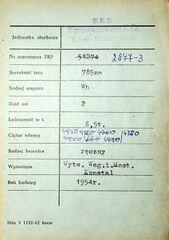 PKP
Jednostka służbowa
Nr inwentarza PKP 51294 2847-3
Szerokość toru 785mm
Rodzaj wagonu Wh
Ilość osi 2
Ładowność w t. 8,5t.
Ciężar własny
Rodzaj hamulca ręczny
Wytwórnia Wytw. Wag.i.Most.
Konstal
Rok budowy 1954r.